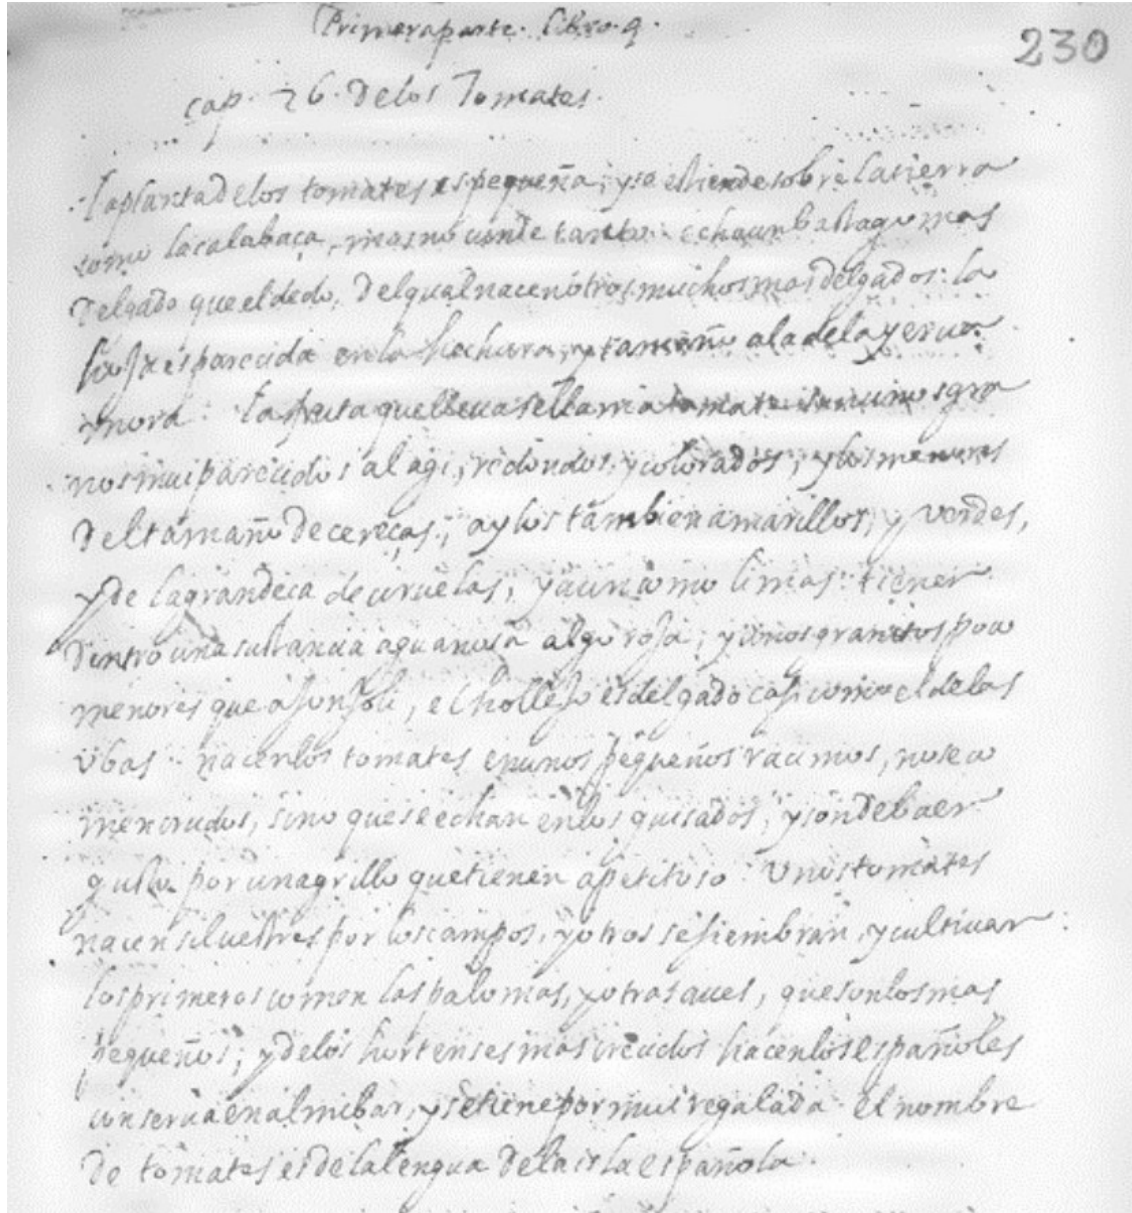 Primera parte. Libro. 4.
230
cap. 26. De los Tomates.
La planta de los tomates es pequeña; y se estiende sobre la tierra
como la calabaça, mas no cunde tanto: echa un bastago mas
delgado que el dedo, del qual nacen otros muchos mas delgados: la
hoja es parecida en la hechura, y tamaño a la de la yerua
mora. La fruta que lleua se llama tomate unos gra
nos mui parecidos al agi, redondos, y colorados; y los menores
del tamaño de cereças; ay los tambien amarillos, y verdes,
y de la grandeça de ciruelas, y aun como limas: tienen
dentro una sustancia aguanosa algo roja; y unos granitos poco
menores que ajonjoli, el hollejo es delgado casi como el de las
vbas: nacen los tomates en unos pequeños racimos, no se co
men crudos, sino que se echan en los guisados; y son de buen
gusto por un agrillo que tienen apetitoso. Unos tomates
nacen siluestres por los campos, y otros se siembran, y cultiuan:
los primeros comen las palomas, y otras aues, que son los mas
pequeños; y de los hortenses mas crecidos hacen los españoles
conserua en almibar, y se tiene por mui regalada. el nombre
de tomates es de la lengua de la isla española.